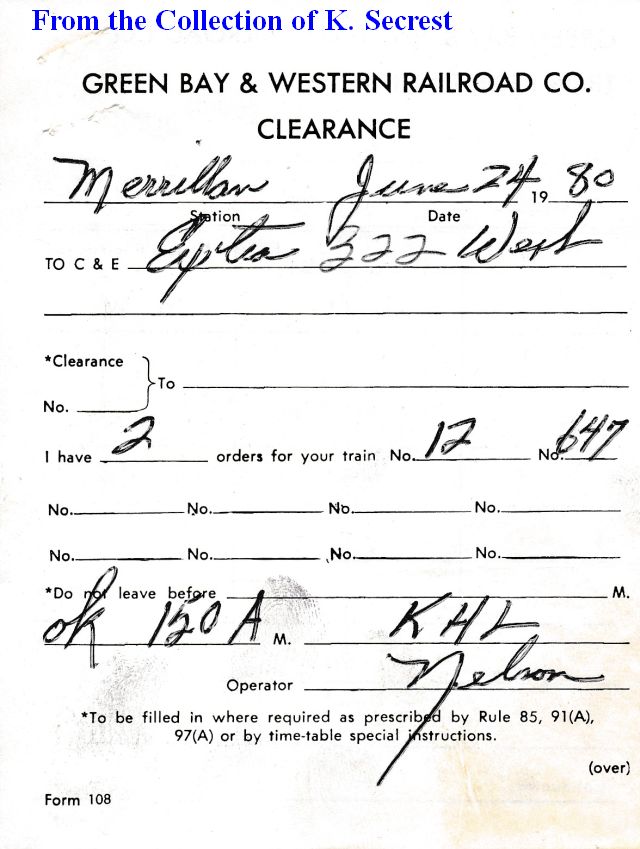 From the Collection of K. Secrest
GREEN BAY & WESTERN RAILROAD CO.
CLEARANCE
Merrillan June 24 19 80
Station Date
TO C & E Extra 322 West
*Clearance
No. } To
I have 2 orders for your train No. 12 No. 647
No. No. No. No.
No. No. No. No.
*Do not leave before M.
ok 150 A M. KHL
Operator Nelson
*To be filled in where required as prescribed by Rule 85, 91(A),
97(A) or by time-table special instructions.
(over)
Form 108